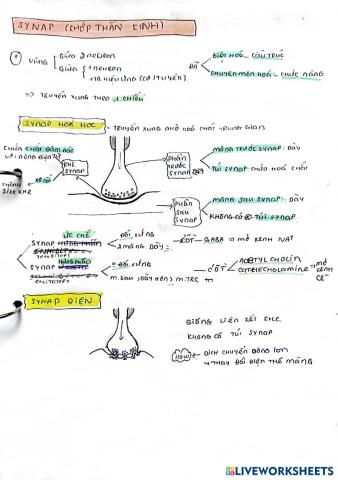 SYNAP (KHỚP THẦN KINH)
VÙNG
Giữa 2 neuron
Giữa 1 neuron
1 TB hiệu ứng (cơ, tuyến)
ĐÃ
BIỆT HOÁ - CẤU TRÚC
CHUYÊN MÔN HOÁ - CHỨC NĂNG
⇒ TRUYỀN XUNG THEO 1 CHIỀU
SYNAP HOÁ HỌC - TRUYỀN XUNG NHỜ HOÁ CHẤT TRUNG GIAN
CHỨA CHẤT ĐẬM ĐẶC
KHE SYNAP
PHẦN TRƯỚC SYNAP
MÀNG TRƯỚC SYNAP: DÀY
TÚI SYNAP CHỨA HOÁ CHẤT
PHẦN SAU SYNAP
MÀNG SAU SYNAP: DÀY
KHÔNG CÓ TÚI SYNAP
SYNAP
ỨC CHẾ
ĐỐI XỨNG
2 MÀNG DÀY =
GABA → MỞ KÊNH
SYNAP
HƯNG PHẤN
EXCITATORY
Ø ĐỐI XỨNG
M.SAU DÀY HƠN M.TRC
CDT
ACETYLCHOLIN
MỞ KÊNH
SYNAP ĐIỆN
GIỐNG LIÊN KẾT KHE
KHÔNG CÓ TÚI SYNAP
HOW
DỊCH CHUYỂN DÒNG ION
→ THAY ĐỔI ĐIỆN THẾ MÀNG
LIVEWORKSHEETS